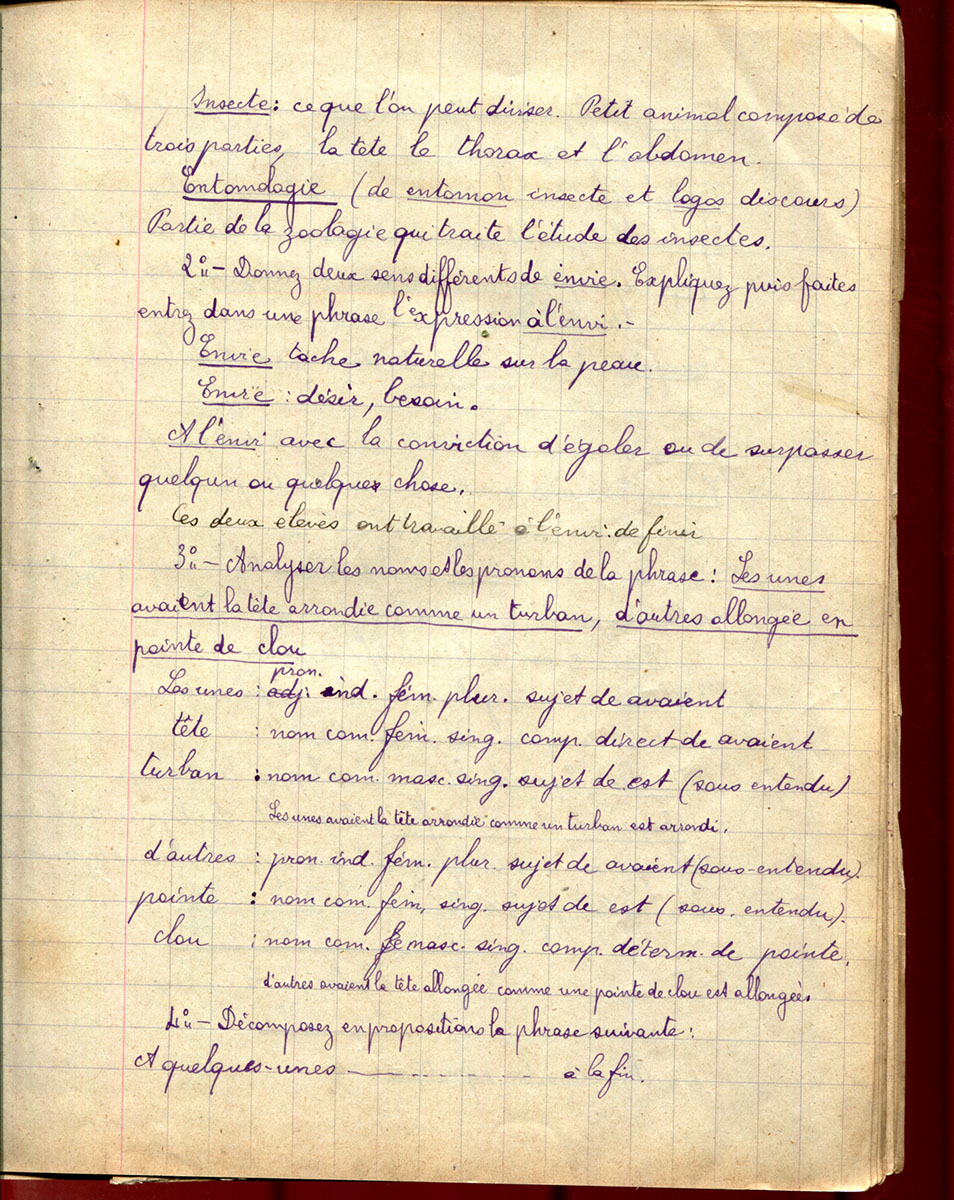 Insecte : ce que l'on peut diviser. Petit animal composé de
trois parties, la tête le thorax et l'abdomen.
Entomologie (de entomon insecte et logos discours)
Partie de la zoologie qui traite l'étude des insectes.
2°- Donnez deux sens différents de envie. Expliquez puis faites
entrez dans une phrase l'expression à l'envi.-
Envie tache naturelle sur la peau.
Envie : désir, besoin.
A l'envi avec la conviction d'égaler ou de surpasser
quelqun ou quelque chose.
Ces deux élèves ont travaillé à l'envi de finir
3°- Analyser les noms et les pronoms de la phrase : Les unes
avaient la tête arrondie comme un turban, d'autres allongée en
pointe de clou
pron.
Les unes : adj. ind. fém. plur. sujet de avaient
tête : nom com. fém. sing. comp. direct de avaient
turban : nom com. masc. sing. sujet de est (sous entendu)
Les unes avaient la tête arrondie comme un turban est arrondi.
d'autres : pron. ind. fém. plur. sujet de avaient (sous-entendu).
pointe : nom com. fém. sing. sujet de est (sous. entendu).
clou : nom com. masc. sing. comp. déterm. de pointe.
d'autres avaient la tête allongée comme une pointe de clou est allongée
4°- Décomposez en propositions la phrase suivante :
A quelques-unes ---------- à la fin.